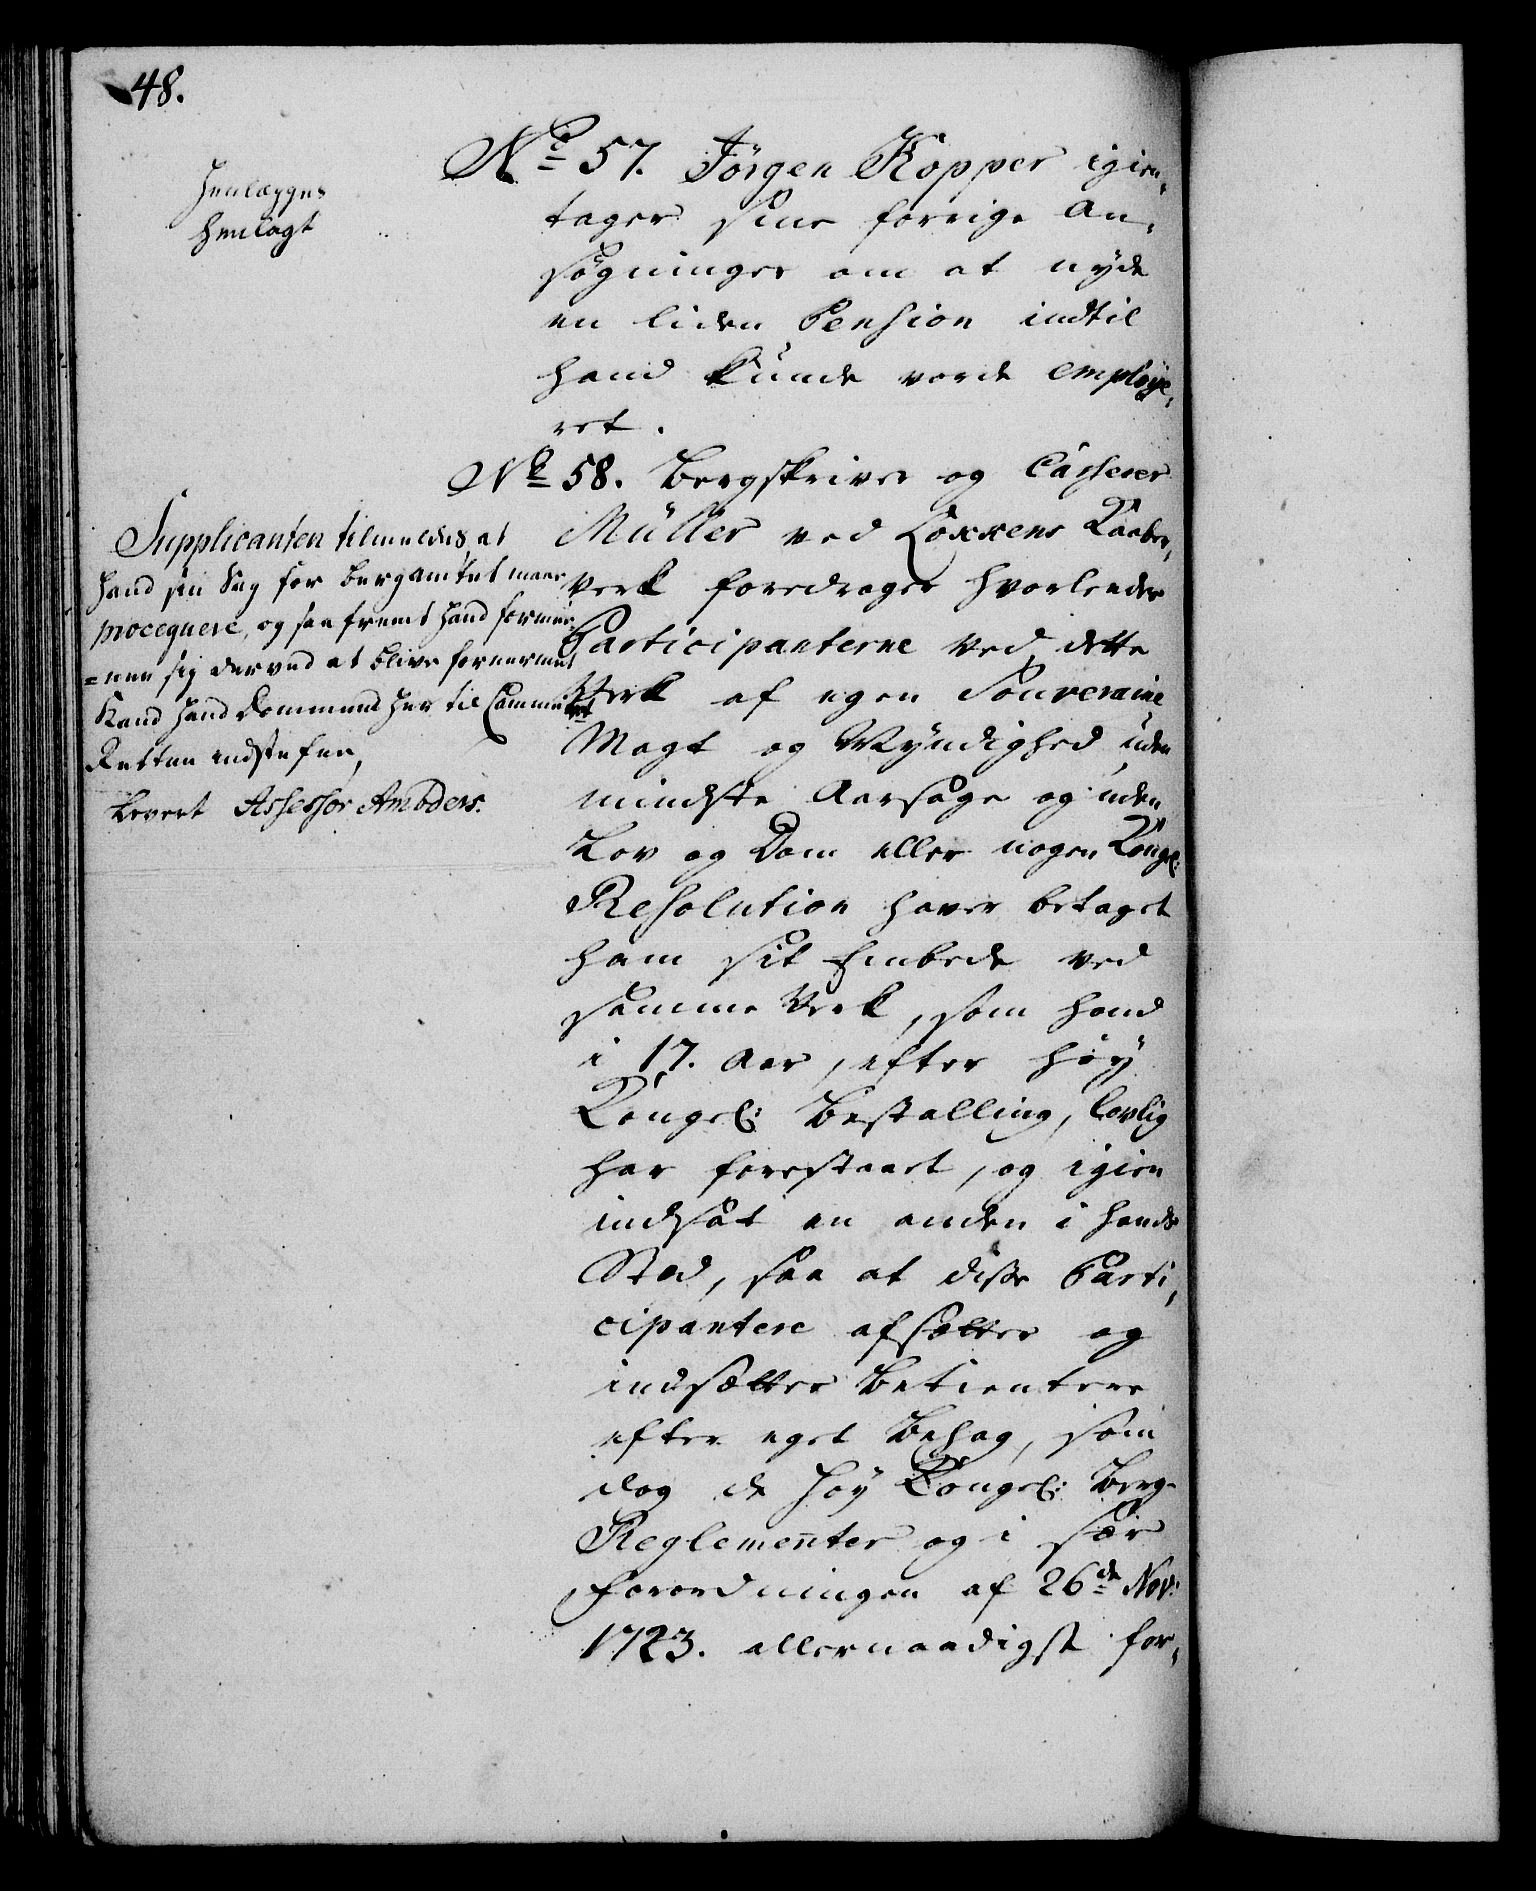 48.
No 57. Jörgen Kopper igien,
tager sine forrige An,
søgninger om at nyde
en liden Pension indtil
hand kunde vorde employe,
ret.
Henlægges
henlagt
No 58. Bergskriver og Casserer
Müller ved Løkkens Kaaber,
verk foredrager hvorledes
Participanterne ved dette
Verk af egen Souveraine
Magt og Myndighed uden
mindste Aarsage og uden
Lov og Dom eller nogen Kongel:
Resolution haver betaget
ham sit Embede ved
samme Verk, som hand
i 17. Aar, efter høy
Kongel: Bestalling, lovlig
har forestaaet, og igien
indsat en anden i hands
Sted, saa at disse Parti,
cipantere afsætter og
indsætter Betientere
efter eget Behag, som
dog de høy Kongel: Berg-
Reglementer og i sær
Forordningen af 26de Nov:
1723. allernaadigst for,
Supplicanten tilmeldes, at
hand sin Sag for Bergamtet maae
procequere, og saa fremt hand formee-
=ner sig derved at blive fornermet
Kand hand Dommend her til Cammer
Retten indstefne,
Levert Assessor Anbders.